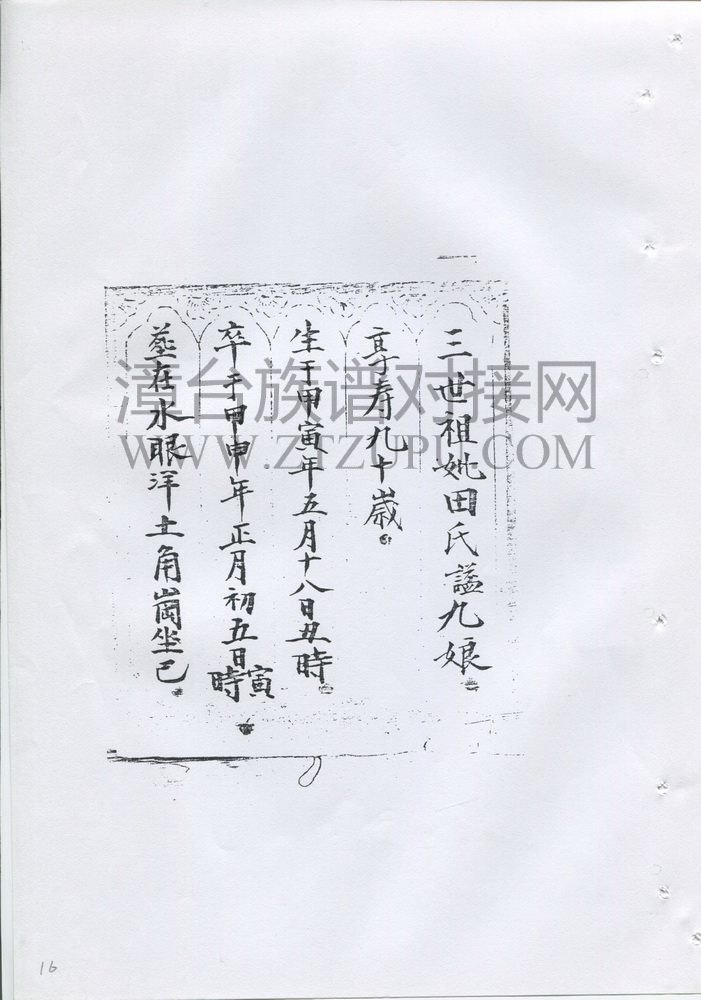 三世祖妣田氏謚九娘
享寿九十歲
生于甲寅年五月十八日丑時
卒于甲申年正月初五日寅時
塟在水眼洋土角崗坐巳
漳台族谱对接网
WWW.ZTZUPU.COM
16